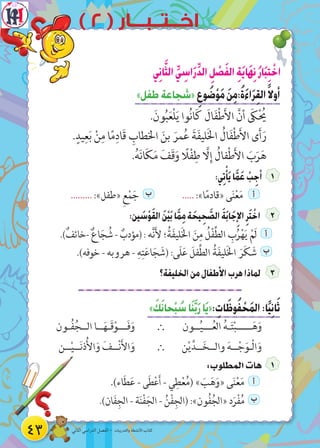 اختبار (٢)
اخْتِبَارُ نِهَايَةِ الْفَصْلِ الدِّرَاسِيِّ الثَّانِي
أولاً القراءة: من موضوع «شجاعة طفل»
يُحْكَى أَنَّ الأَطْفَالَ كَانُوا يَلْعَبُونَ.
رَأَى الأَطْفَالُ الخَلِيفَةَ عُمَرَ بنَ الخِطابِ قَادِمًا مِنْ بَعِيدٍ.
هَرَبَ الأَطْفَالُ إِلَّا طِفْلًا وَقَفَ مَكَانَهُ.
١ أَجِبْ عَمَّا يَأْتِي:
أ مَعْنَى «قادمًا»: ..... ب جَمْعُ «طفل»: .........
٢ اخْتَرِ الإِجَابَةَ الصَّحِيحَةَ مِمَّا بَيْنَ القَوْسَيْنِ:
أ لَمْ يَهْرُبِ الطِّفْلُ مِنَ الخَلِيفَةِ؛ لأَنَّهُ: (مؤدبٌ - شُجَاعٌ - خائفٌ).
ب شَكَرَ الخَلِيفَةُ الطِّفْلَ عَلَى: (شَجَاعَتِهِ - هروبه - خوفه).
٣ لماذا هرب الأطفال من الخليفة؟
ثَانِيًا: الْمَحْفُوظَاتُ: «يَا رَبَّنَا سُبْحَانَكَ»
وَهَبْتَهُ الْعُيُونَ ∴ وَفَوْقَهَا الْجُفُونَ
وَالْوَجْهَ وَالْخَدَّيْنِ ∴ وَالأَنْفَ وَالأُذْنَيْنِ
١ هات المطلوب:
أ مَعْنَى «وَهَبَ» (يُعْطِي - أَعْطَى - عَطَاء).
ب مُفْرَد «الجُفُون»: (الجَفْنُ - الجَفْنَة - الجِفَان).
٤٣ كتاب الأنشطة والتدريبات - الفصل الدراسي الثاني